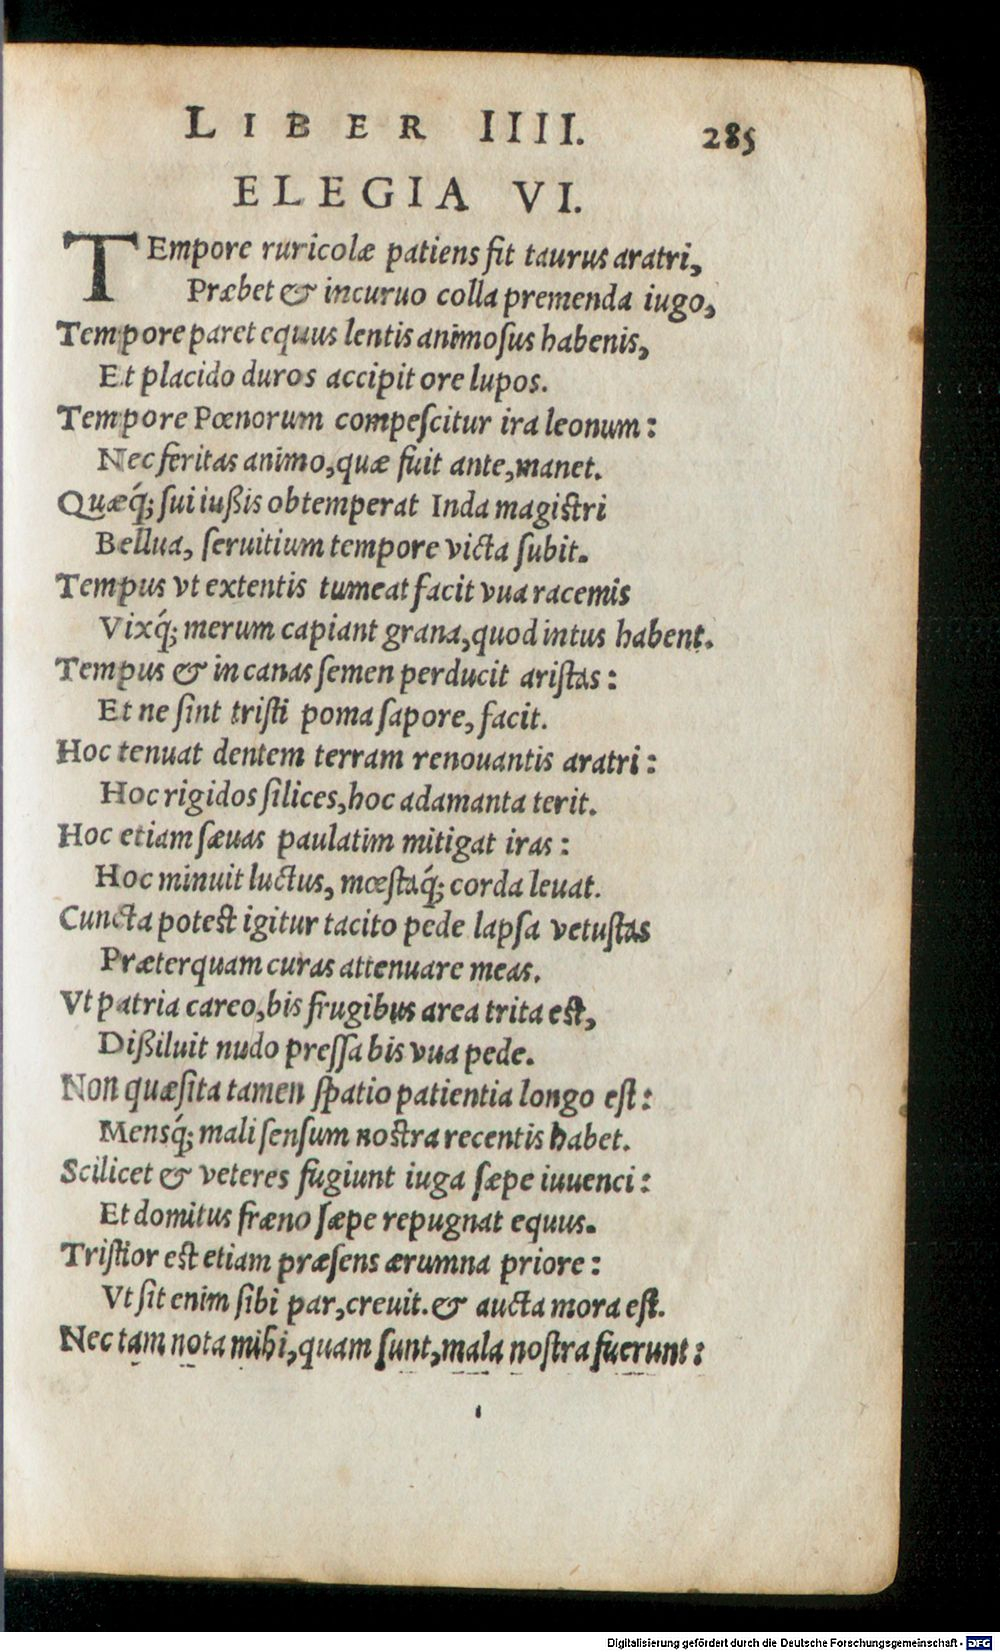 LIBER IIII. 285
ELEGIA VI.
TEmpore ruricolæ patiens fit taurus aratri,
Præbet & incuruo colla premenda iugo,
Tempore paret equus lentis animoſus habenis,
Et placido duros accipit ore lupos.
Tempore Pœnorum compeſcitur ira leonum:
Nec feritas animo, quæ fuit ante, manet.
Quæq́; ſui iußis obtemperat Inda magiſtri
Bellua, ſeruitium tempore victa ſubit.
Tempus vt extentis tumeat facit vua racemis
Vixq́; merum capiant grana, quod intus habent.
Tempus & in canas ſemen perducit ariſtas:
Et ne ſint triſti poma ſapore, facit.
Hoc tenuat dentem terram renouantis aratri:
Hoc rigidos ſilices, hoc adamanta terit.
Hoc etiam ſæuas paulatim mitigat iras:
Hoc minuit luctus, mœſtaq́; corda leuat.
Cuncta poteſt igitur tacito pede lapſa vetuſtas
Præterquam curas attenuare meas.
Vt patria careo, bis frugibus area trita eſt,
Dißiluit nudo preſſa bis vua pede.
Non quæſita tamen ſpatio patientia longo eſt:
Mensq́; mali ſenſum noſtra recentis habet.
Scilicet & veteres fugiunt iuga ſæpe iuuenci:
Et domitus fræno ſæpe repugnat equus.
Triſtior eſt etiam præſens ærumna priore:
Vt ſit enim ſibi par, creuit. & aucta mora eſt.
Nec tam nota mihi, quam ſunt, mala noſtra fuerunt:
Digitalisierung gefördert durch die Deutsche Forschungsgemeinschaft - DFG